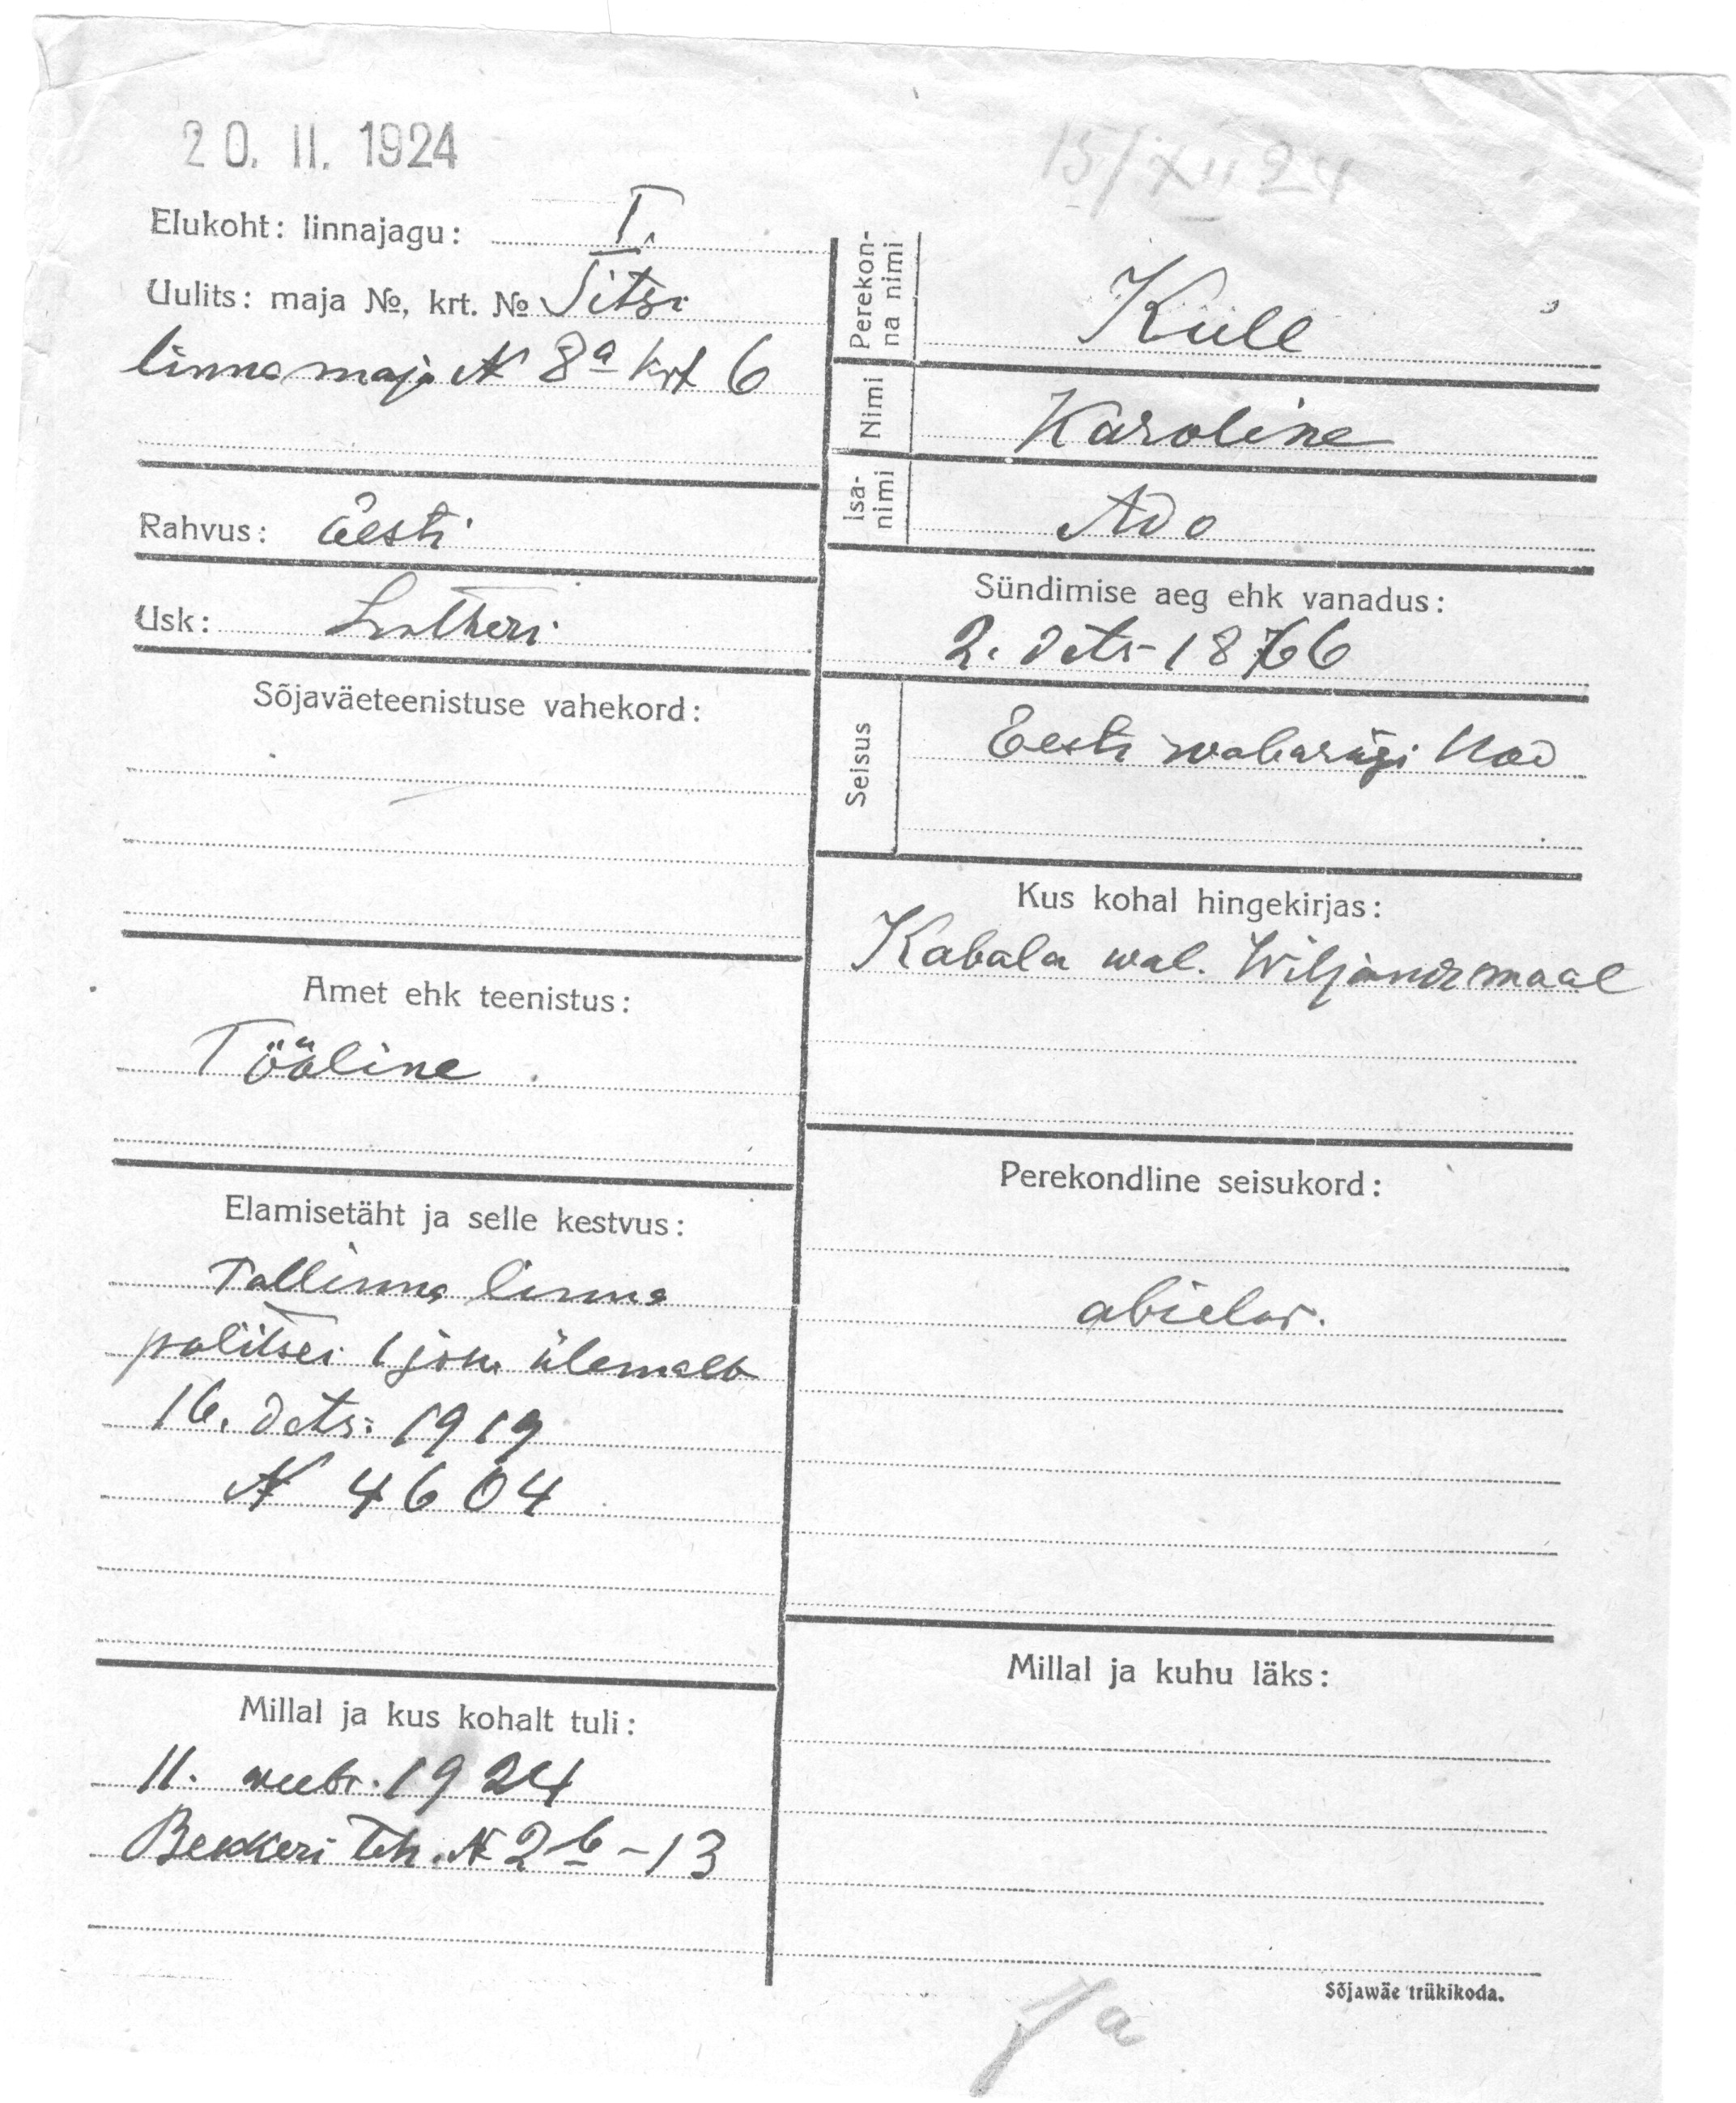 20. II. 1924
15/XII 24
Elukoht: linnajagu: I.
Uulits: maja №, krt. № Sitsi
linna maja N 8a krt 6
Rahvus: eesti
Usk: Lutheri
Sõjaväeteenistuse vahekord:
Amet ehk teenistus:
Tööline
Elamisetäht ja selle kestvus:
Tallinna linna
politsei 1 jsk. ülemalt
16. dets. 1919
N 4604
Millal ja kus kohalt tuli:
11. weebr. 1924
Bekkeri teh. N 2b-13
Perekon-
na nimi
Küll
Nimi
Karoline
Isa-
nimi
Ado
Sündimise aeg ehk vanadus:
2. dets. 1866
Seisus
Eesti wabariigi kod
Kus kohal hingekirjas:
Kabala wal. Wiljandimaal
Perekondline seisukord:
abielus.
Millal ja kuhu läks:
Sõjawäe trükikoda.